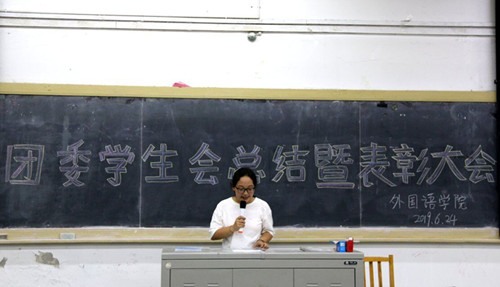 团委学生会总结暨表彰大会
外国语学院
2019.6.24